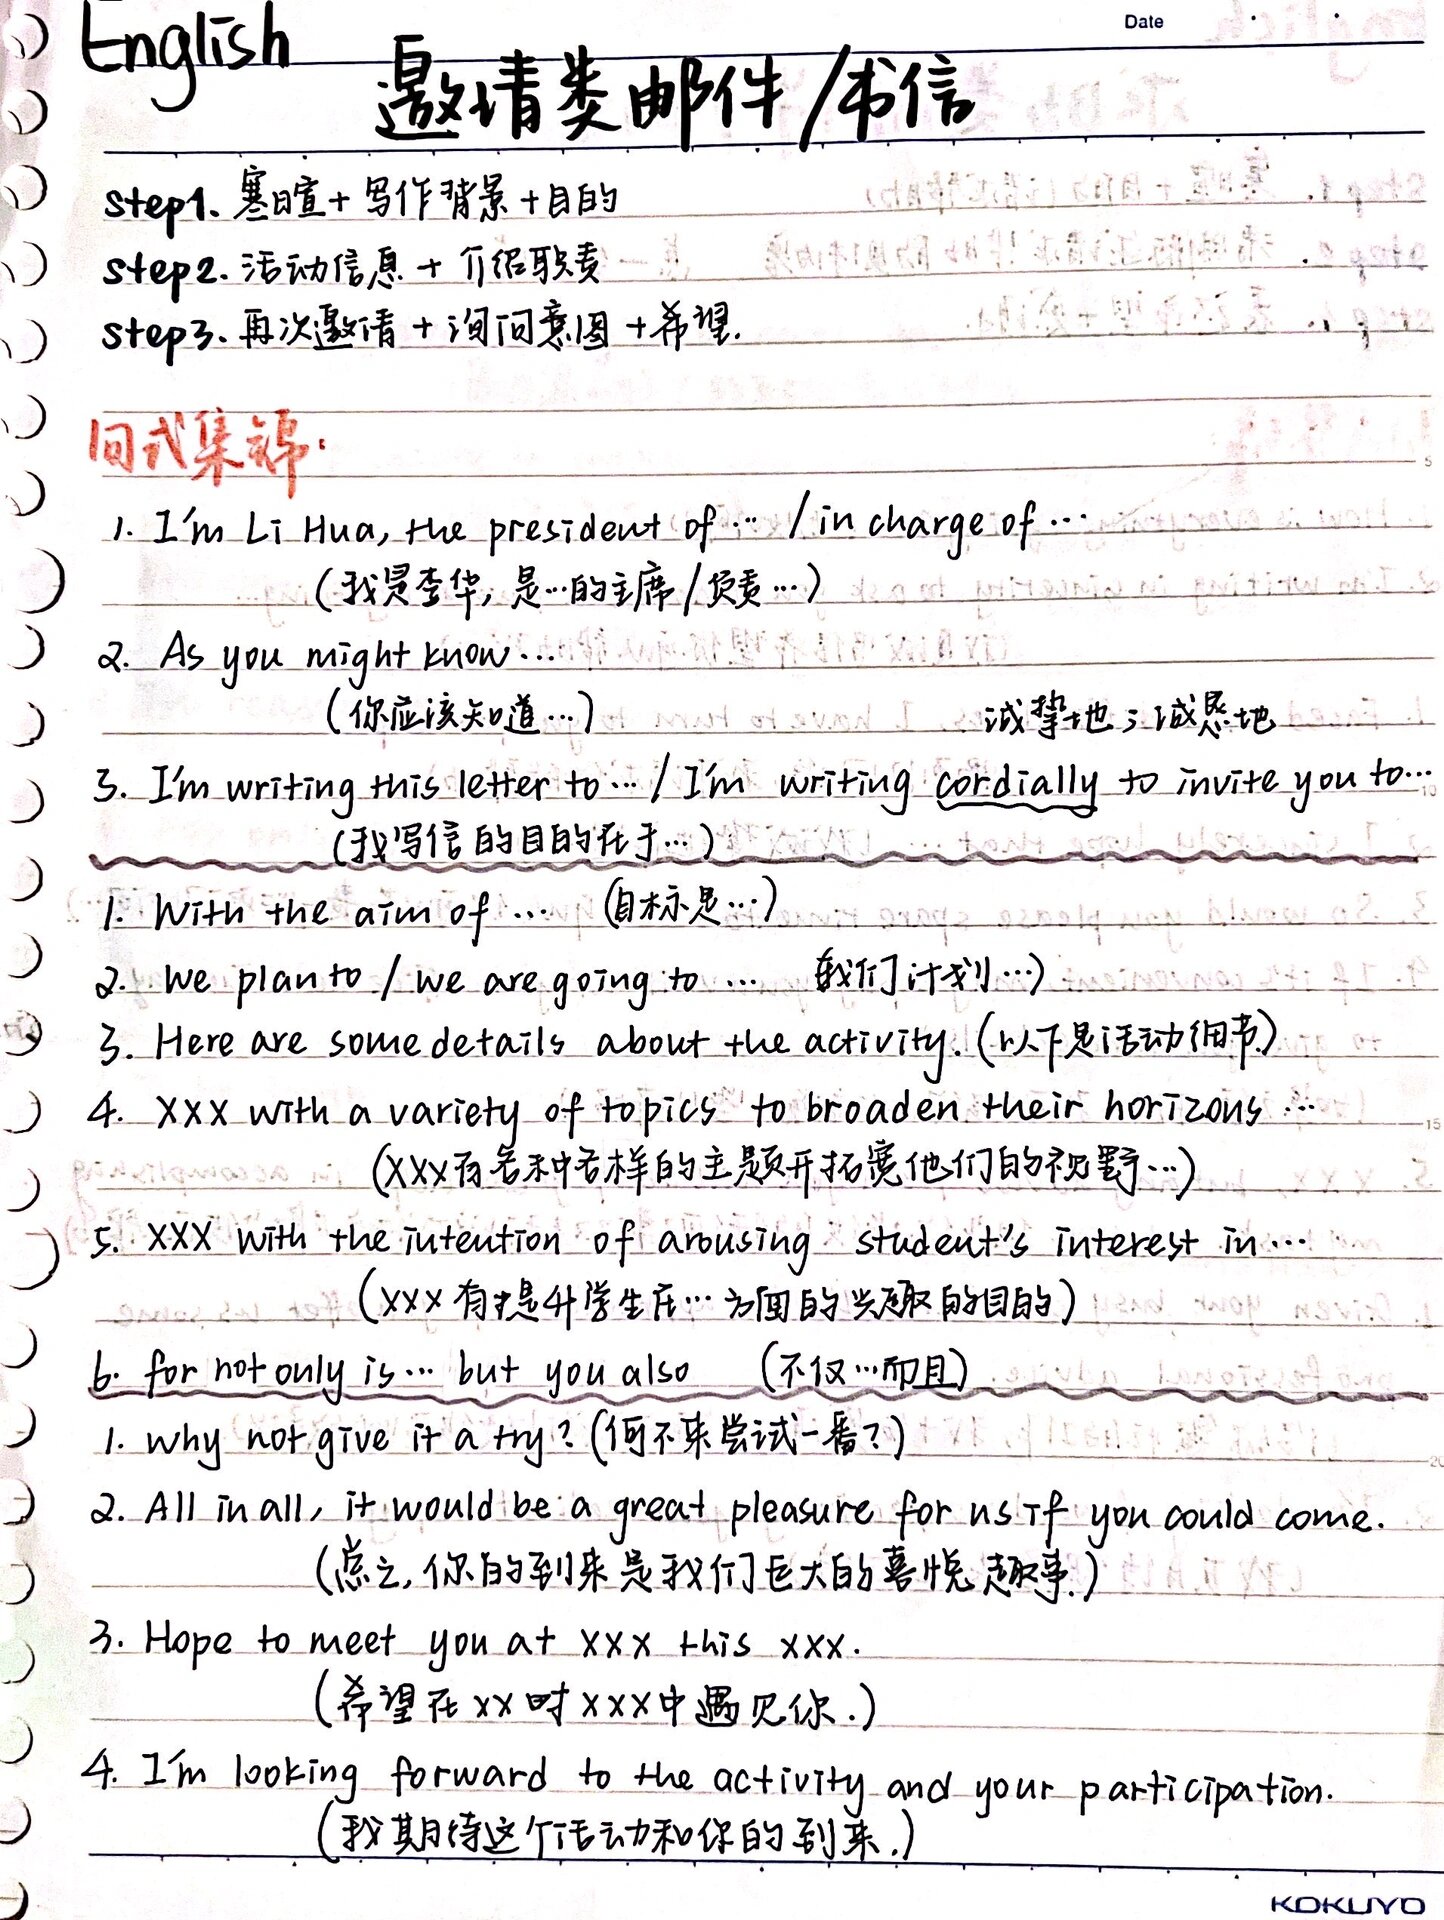 Date
English
邀请类邮件/书信
step1. 寒暄+写作背景+目的
step2. 活动信息+介绍职责
step3. 再次邀请+询问意图+希望.
句式集锦.
1. I'm Li Hua, the president of … / in charge of …
(我是李华, 是…的主席/负责…)
2. As you might know …
(你应该知道…)
诚挚地; 诚恳地
3. I'm writing this letter to … / I'm writing cordially to invite you to …
(我写信的目的在于…)
1. With the aim of … (目标是…)
2. We plan to / we are going to … 我们计划…)
3. Here are some details about the activity. (以下是活动细节.)
4. XXX with a variety of topics to broaden their horizons …
(XXX有各种各样的主题开拓宽他们的视野…)
5. XXX with the intention of arousing student's interest in …
(XXX有提升学生在…方面的兴趣的目的)
6. for not only is … but you also (不仅…而且)
1. Why not give it a try? (何不来尝试一番?)
2. All in all, it would be a great pleasure for us if you could come.
(总之, 你的到来是我们巨大的喜悦趣事.)
3. Hope to meet you at XXX this XXX.
(希望在XX时XXX中遇见你.)
4. I'm looking forward to the activity and your participation.
(我期待这个活动和你的到来.)
KOKUYO